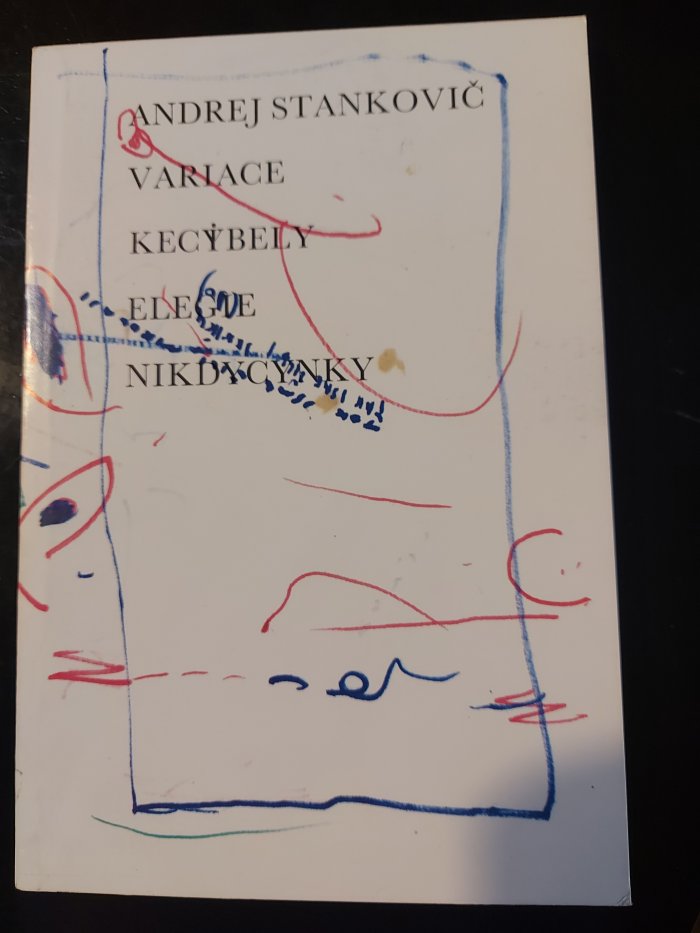 ANDREJ STANKOVIČ
VARIACE
KECYBELY
ELEGIE
NIKDYCYNKY